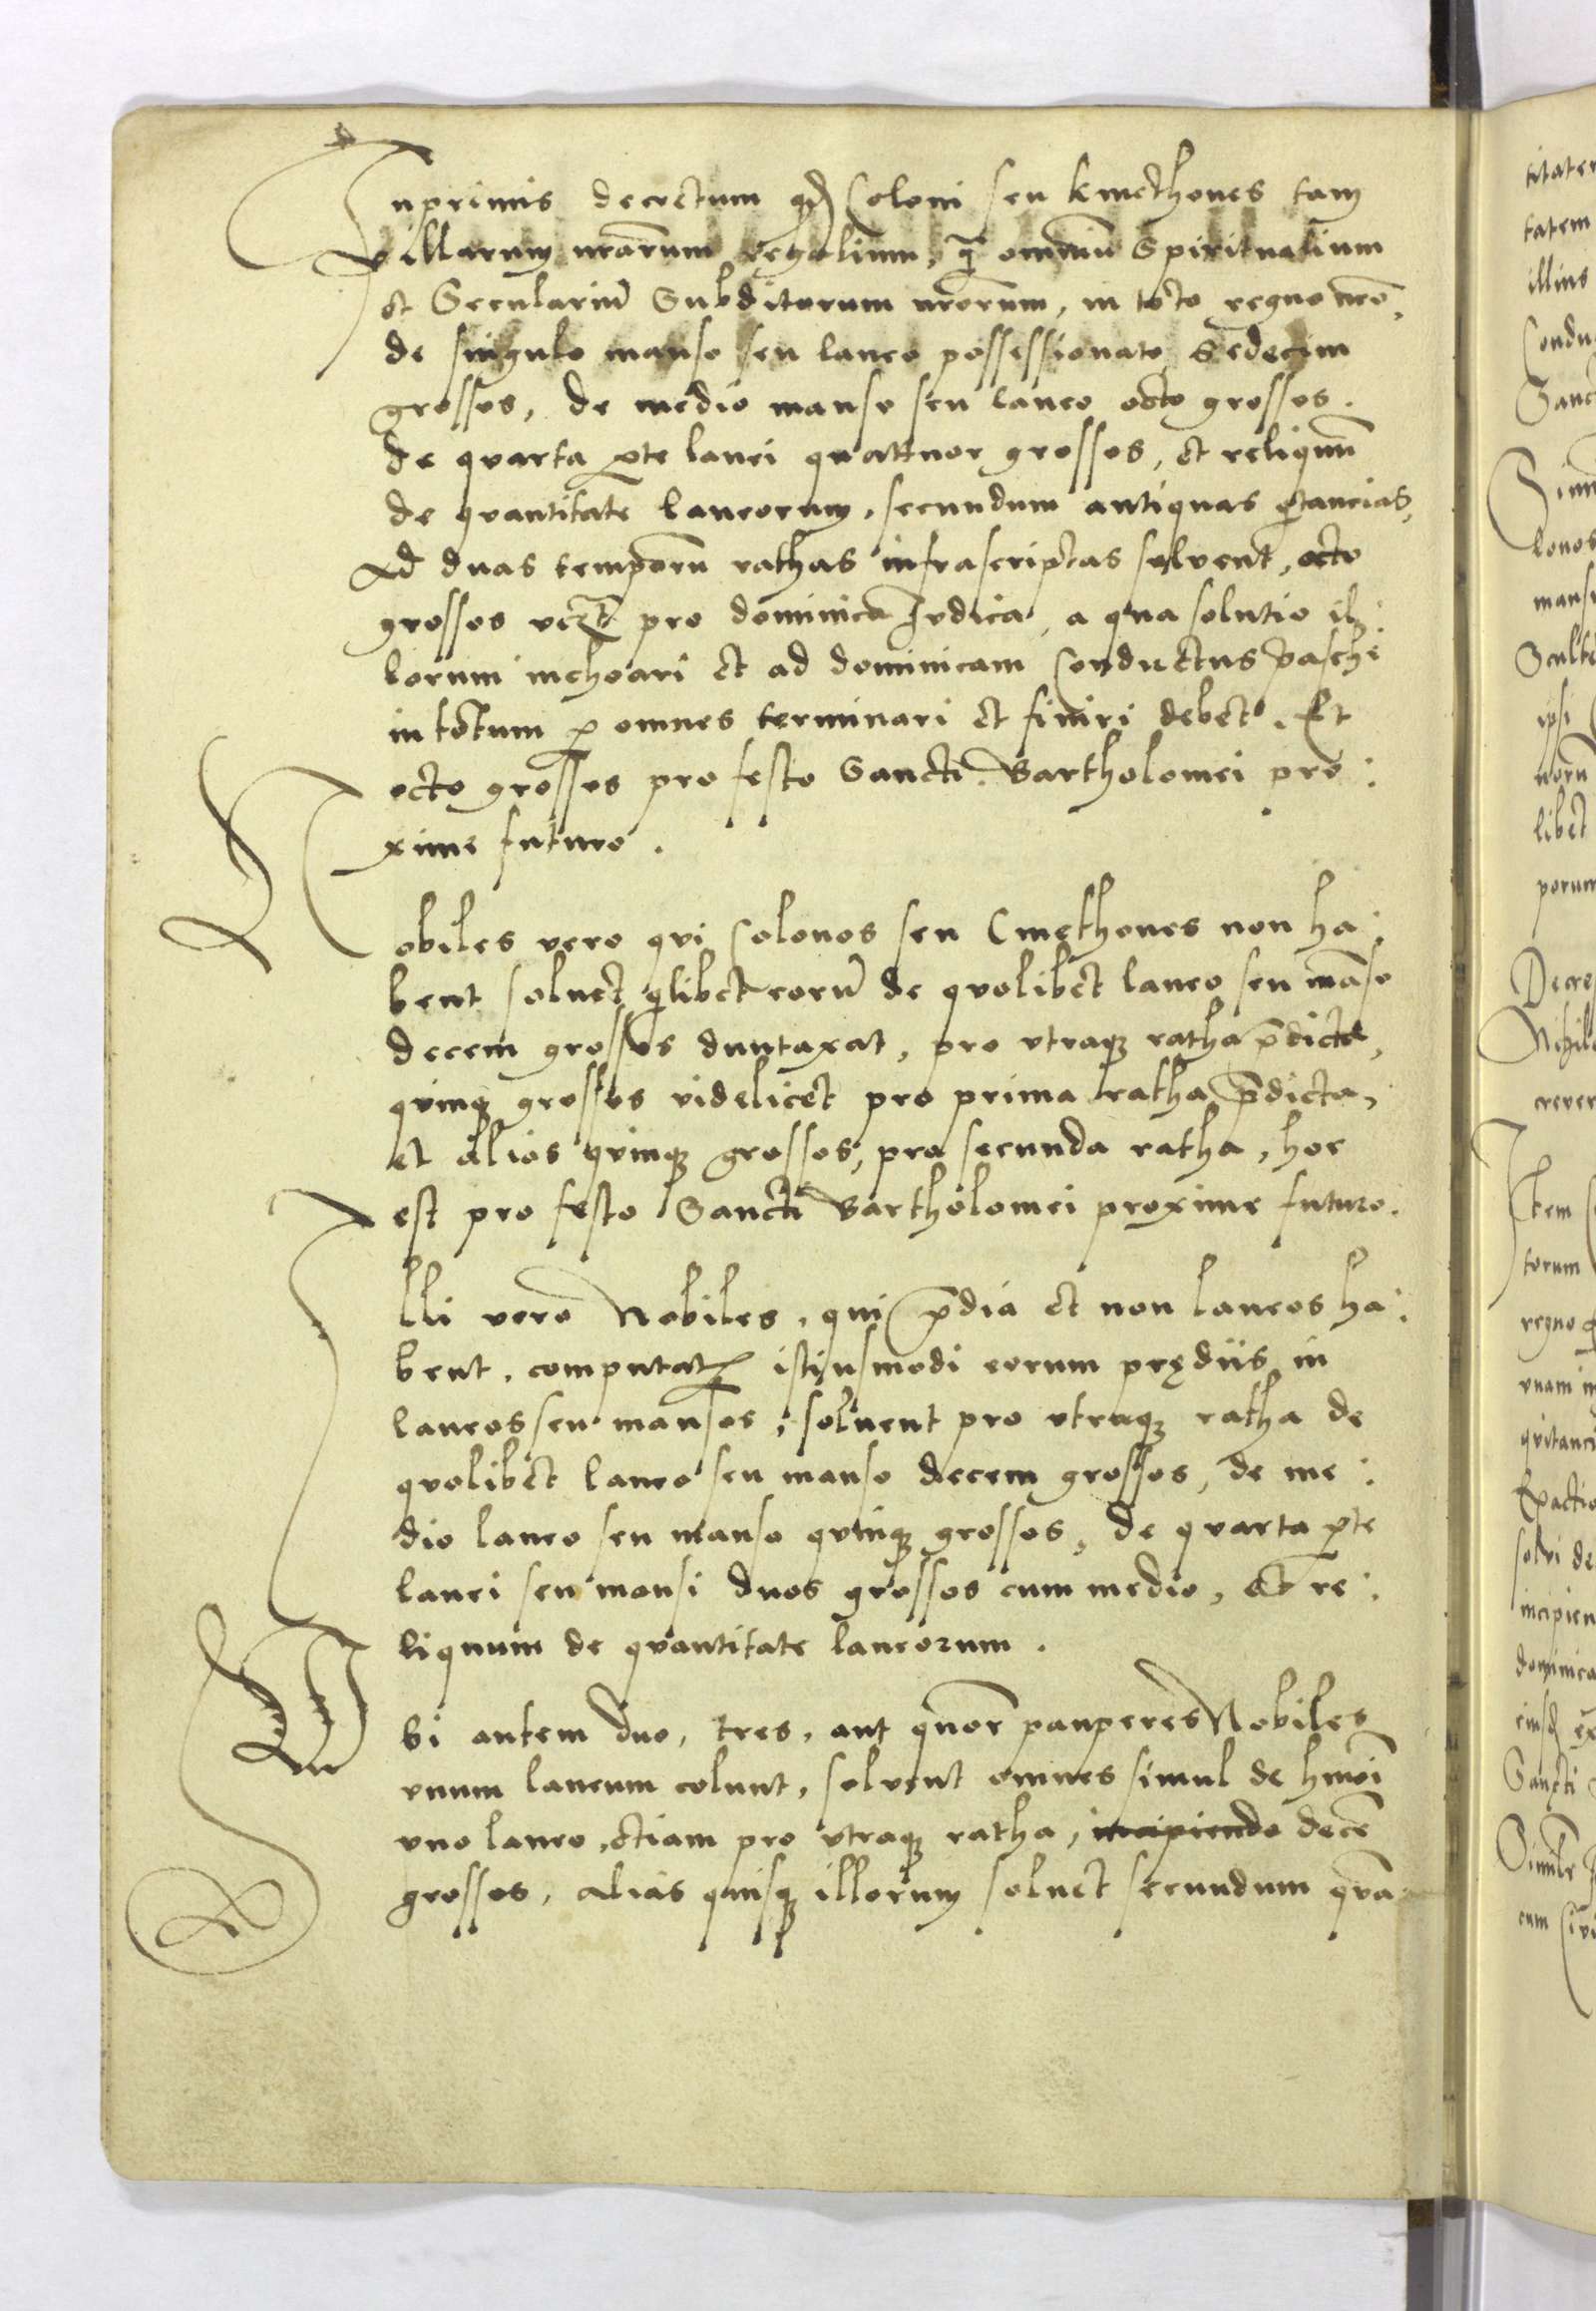 Inprimis decretum qđ Coloni seu kmethones tam
villarum nr̄arum regalium, q̄ omniū Spiritualium
et Seculariū Subditorum nr̄orum, in toto regno nr̄o,
de singulo manso seu laneo possessionato Sedecim
grossos, de medio manso seu laneo octo grossos.
de quarta ꝑte lanei quattuor grossos, et reliquū
de quantitate laneorum, secundum antiquas q̄tancias,
Ad duas temporū rathas infrascriptas solvent, octo
grossos pro dominica Judica, a qua solutio il:
lorum inchoari et ad dominicam Conductus Pasche
in totum ꝑ omnes terminari et finiri debet. Et
octo grossos pro festo Sancti Bartholomei pro:
xime futuro.
Nobiles vero qui Colonos seu Cmethones non ha:
bent soluet q̄libet eorū de quolibet laneo seu māso
decem grossos duntaxat, pro vtraqꝫ ratha p̄dicta,
quinqꝫ grossos videlicet pro prima ratha p̄dicta,
et alios quinqꝫ grossos, pro secunda ratha, hoc
est pro festo Sancti Bartholomei proxime futuro.
Illi vero Nobiles, qui p̄dia et non laneos ha:
bent, computatꝭ istiusmodi eorum prędiis in
laneos seu mansos, soluent pro vtraqꝫ ratha de
quolibet laneo seu manso decem grossos, de me:
dio laneo seu manso quinqꝫ grossos, de quarta ꝑte
lanei seu mansi duos grossos cum medio, Et re:
liquum de quantitate laneorum.
Vbi autem duo, tres, aut quor̄ pauperes Nobiles
vnum laneum colunt, solvent omnes simul de hm̄oi
vno laneo, etiam pro vtraqꝫ ratha, incipiendo decē
grossos, alias quisqꝫ illorum soluet secundum quā
titatem
tatem
illius
Condu
Sanc
lonos
mansu
Sculte
ipsi
libet
porum
Decre
crever
Item
torum
regno
vnam
quitanci
Exactio
solvi de
incipien
dominica
Sancti
cum Civi